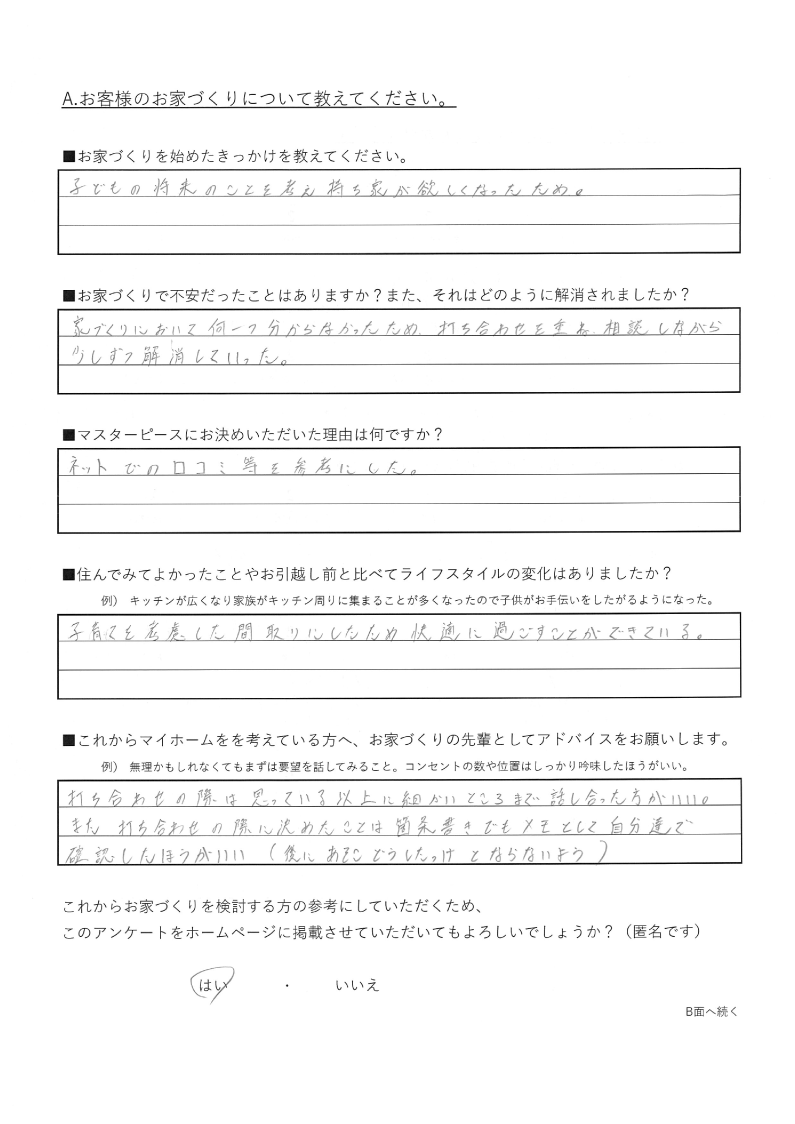 A.お客様のお家づくりについて教えてください。
■お家づくりを始めたきっかけを教えてください。
子どもの将来のことを考え持ち家が欲しくなったため。
■お家づくりで不安だったことはありますか？また、それはどのように解消されましたか？
家づくりにおいて何一つ分からなかったため、打ち合わせを重ね、相談しながら
少しずつ解消していった。
■マスターピースにお決めいただいた理由は何ですか？
ネットでの口コミ等を参考にした。
■住んでみてよかったことやお引越し前と比べてライフスタイルの変化はありましたか？
例） キッチンが広くなり家族がキッチン周りに集まることが多くなったので子供がお手伝いをしたがるようになった。
子育てを考慮した間取りにしたため快適に過ごすことができている。
■これからマイホームをを考えている方へ、お家づくりの先輩としてアドバイスをお願いします。
例） 無理かもしれなくてもまずは要望を話してみること。コンセントの数や位置はしっかり吟味したほうがいい。
打ち合わせの際は思っている以上に細かいところまで話し合った方がいい。
また 打ち合わせの際に決めたことは箇条書きでもメモとして自分達で
確認したほうがいい （後に あそこどうしたっけ とならないよう）
これからお家づくりを検討する方の参考にしていただくため、
このアンケートをホームページに掲載させていただいてもよろしいでしょうか？（匿名です）
はい ・ いいえ
B面へ続く